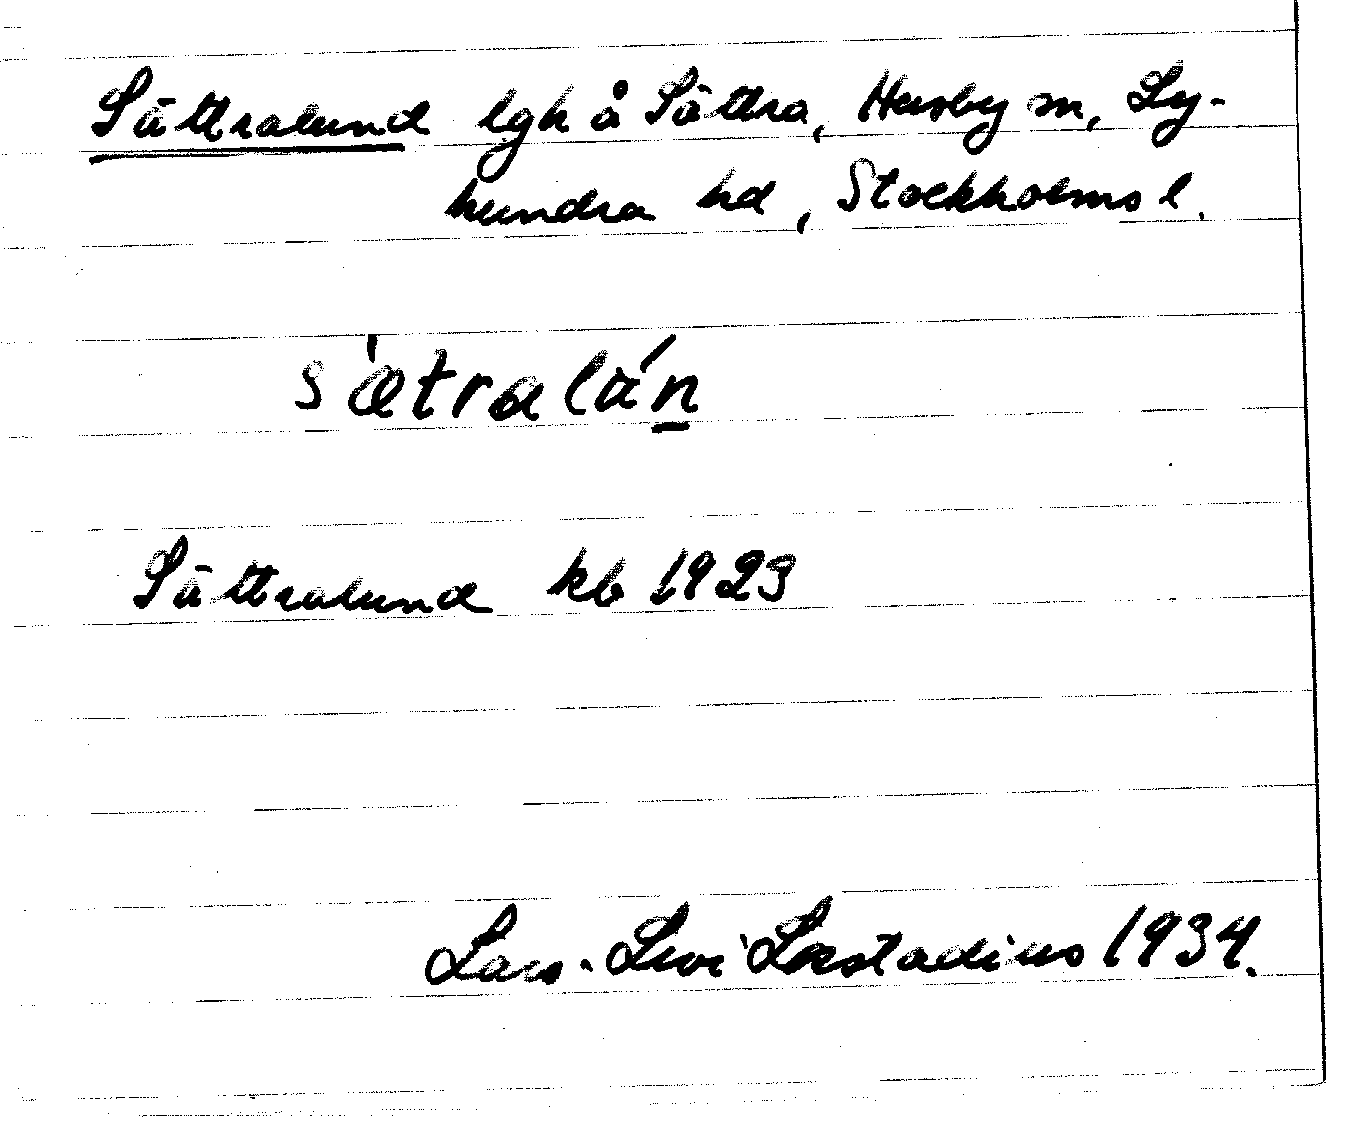 Sättralund lgh å Sättra, Husby sn, Ly-
hundra hd, Stockholms l.
sætralán
Sättralund kb 1923
Lars-Levi Læstadius 1934.